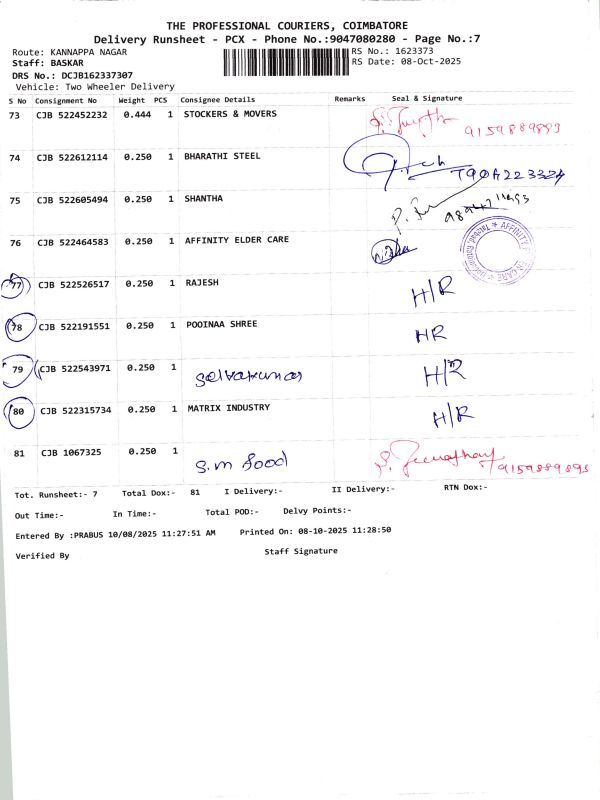 THE PROFESSIONAL COURIERS, COIMBATORE
Delivery Runsheet - PCX - Phone No.:9047080280 - Page No.:7
Route: KANNAPPA NAGAR RS No.: 1623373
Staff: BASKAR RS Date: 08-Oct-2025
DRS No.: DCJB162337307
Vehicle: Two Wheeler Delivery
S No Consignment No Weight PCS Consignee Details Remarks Seal & Signature
73 CJB 522452232 0.444 1 STOCKERS & MOVERS 9159889893
74 CJB 522612114 0.250 1 BHARATHI STEEL
75 CJB 522605494 0.250 1 SHANTHA
76 CJB 522464583 0.250 1 AFFINITY ELDER CARE
77 CJB 522526517 0.250 1 RAJESH H/R
78 CJB 522191551 0.250 1 POOINAA SHREE HR
79 CJB 522543971 0.250 1 Selvakumar H/R
80 CJB 522315734 0.250 1 MATRIX INDUSTRY H/R
81 CJB 1067325 0.250 1 S.M food 9159889893
Tot. Runsheet:- 7 Total Dox:- 81 I Delivery:- II Delivery:- RTN Dox:-
Out Time:- In Time:- Total POD:- Delvy Points:-
Entered By :PRABUS 10/08/2025 11:27:51 AM Printed On: 08-10-2025 11:28:50
Verified By Staff Signature